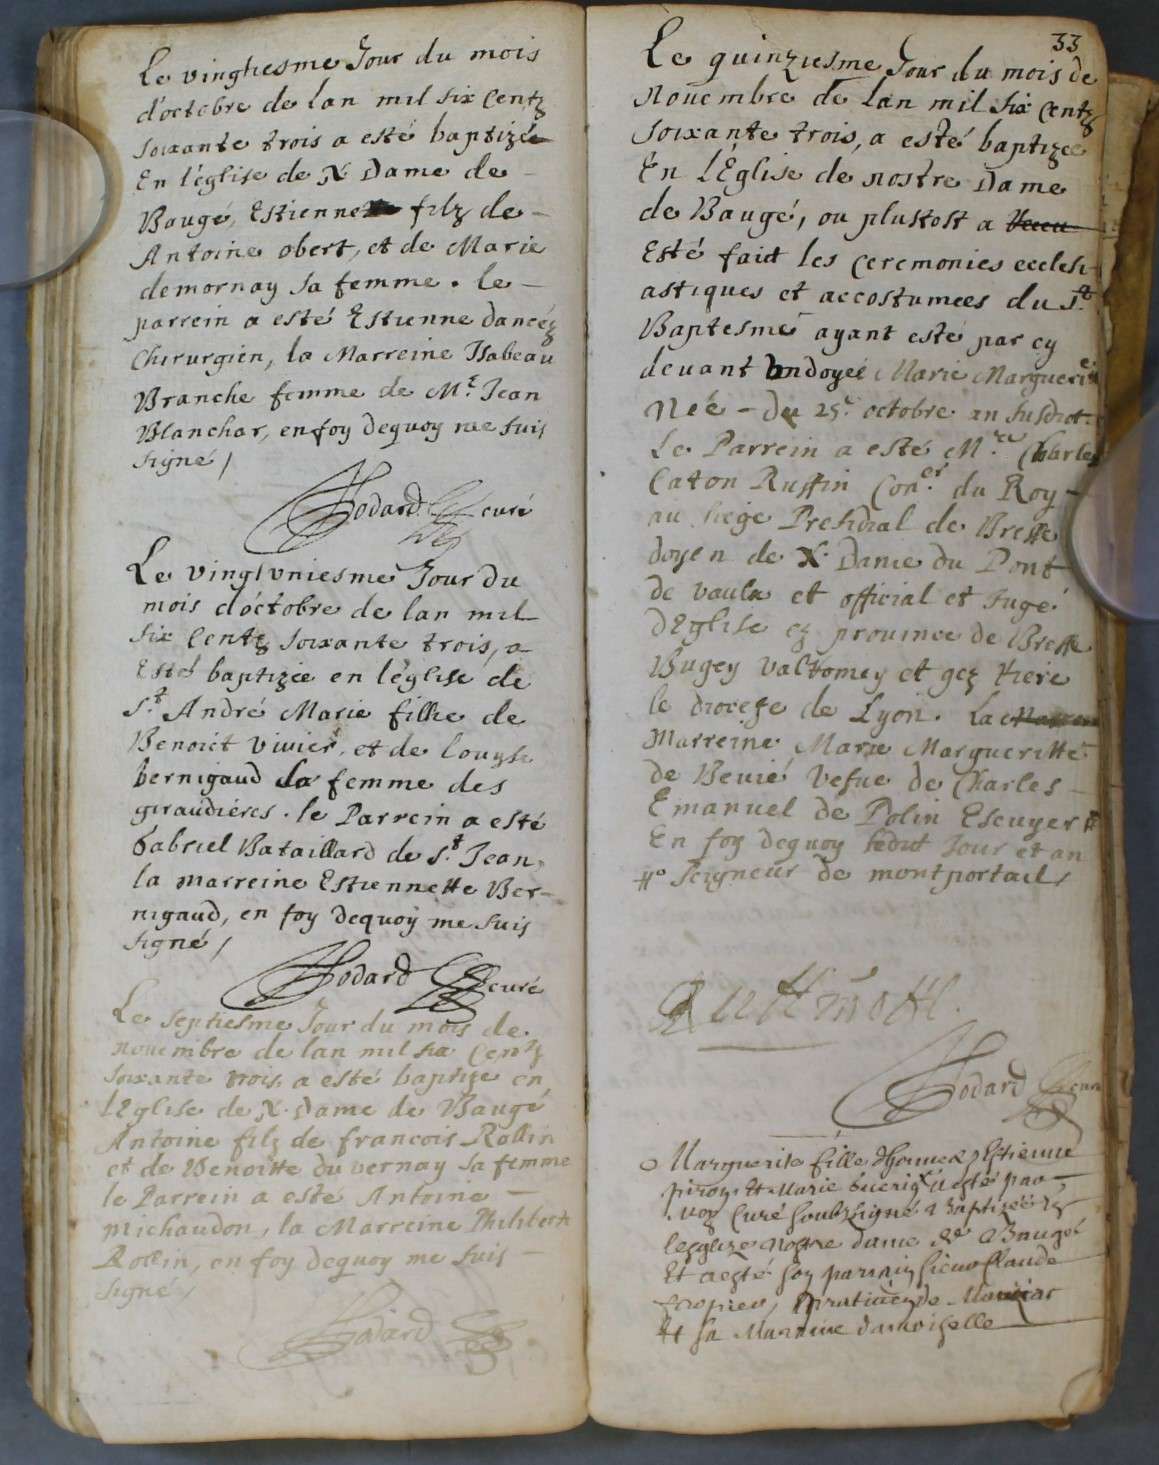 Le vingtiesme Jour du mois
d'octobre de lan mil six Centz
soixante trois a esté baptizée
En l'église de N. Dame de
Baugé, Estienne filz de
Antoine obert, et de Marie
demornay sa femme. le
parrein a esté Estienne dancéz
Chirurgien, la Marreine Isabeau
Branche femme de Mr. Jean
Blanchar, en foy dequoy me suis
signé /
Hodard curé
Le vingtvniesme Jour du
mois d'octobre de lan mil
six Centz soixante trois, a
Esté baptizée en l'église de
St. André Marie fillie de
Benoict Vivier, et de Louyse
bernigaud sa femme des
giraudiéres. le Parrein a esté
Gabriel Bataillard de St. Jean,
la marreine Estiennette Ber-
nigaud, en foy dequoy me suis
signé /
Hodard curé
Le septiesme Jour du mois de
nouembre de lan mil six Centz
soixante trois, a esté baptize en
l'Eglise de N. Dame de Baugé
Antoine filz de francois Rollin
et de Benoitte du vernay sa femme
le Parrein a este Antoine
michaudon, la Marreine Philiberte
Rollin, en foy dequoy me suis
signé /
Hodard
33
Le quinziesme Jour du mois de
Nouembre de lan mil six Centz
soixante trois, a esté baptizee
En L'Église de nostre Dame
de Baugé, ou plustost a
Esté faict les ceremonies ecclesi-
astiques et accostumees du St.
Baptesme ayant esté par cy
deuant ondoyée Marie Marguerite
Née - du 25e. octobre an susdict
Le Parrein a esté Mre. Charles
Caton Ruffin Coner. du Roy
au siege Presidial de Bresse
doyen de N. Dame du Pont
de vaula et official et Juge
d'Eglise ez prouince de Bresse
Bugey Valromey et gez riere
le diocese de Lyon. La
Marreine Marie Margueritte
de Beuié Vefue de Charles
Emanuel de Polin Escuyer #
En foy dequoy ledit Jour et an
# Seigneur de montportail /
Hodard curé
Marguerite fille d'honneste Estienne
piron Et Marie a esté par
moy Curé soubzsigné Baptizée En
leglize nostre dame de Baugé
Et a esté son parrain sieur Claude
praticien de
Et sa Marraine damoiselle